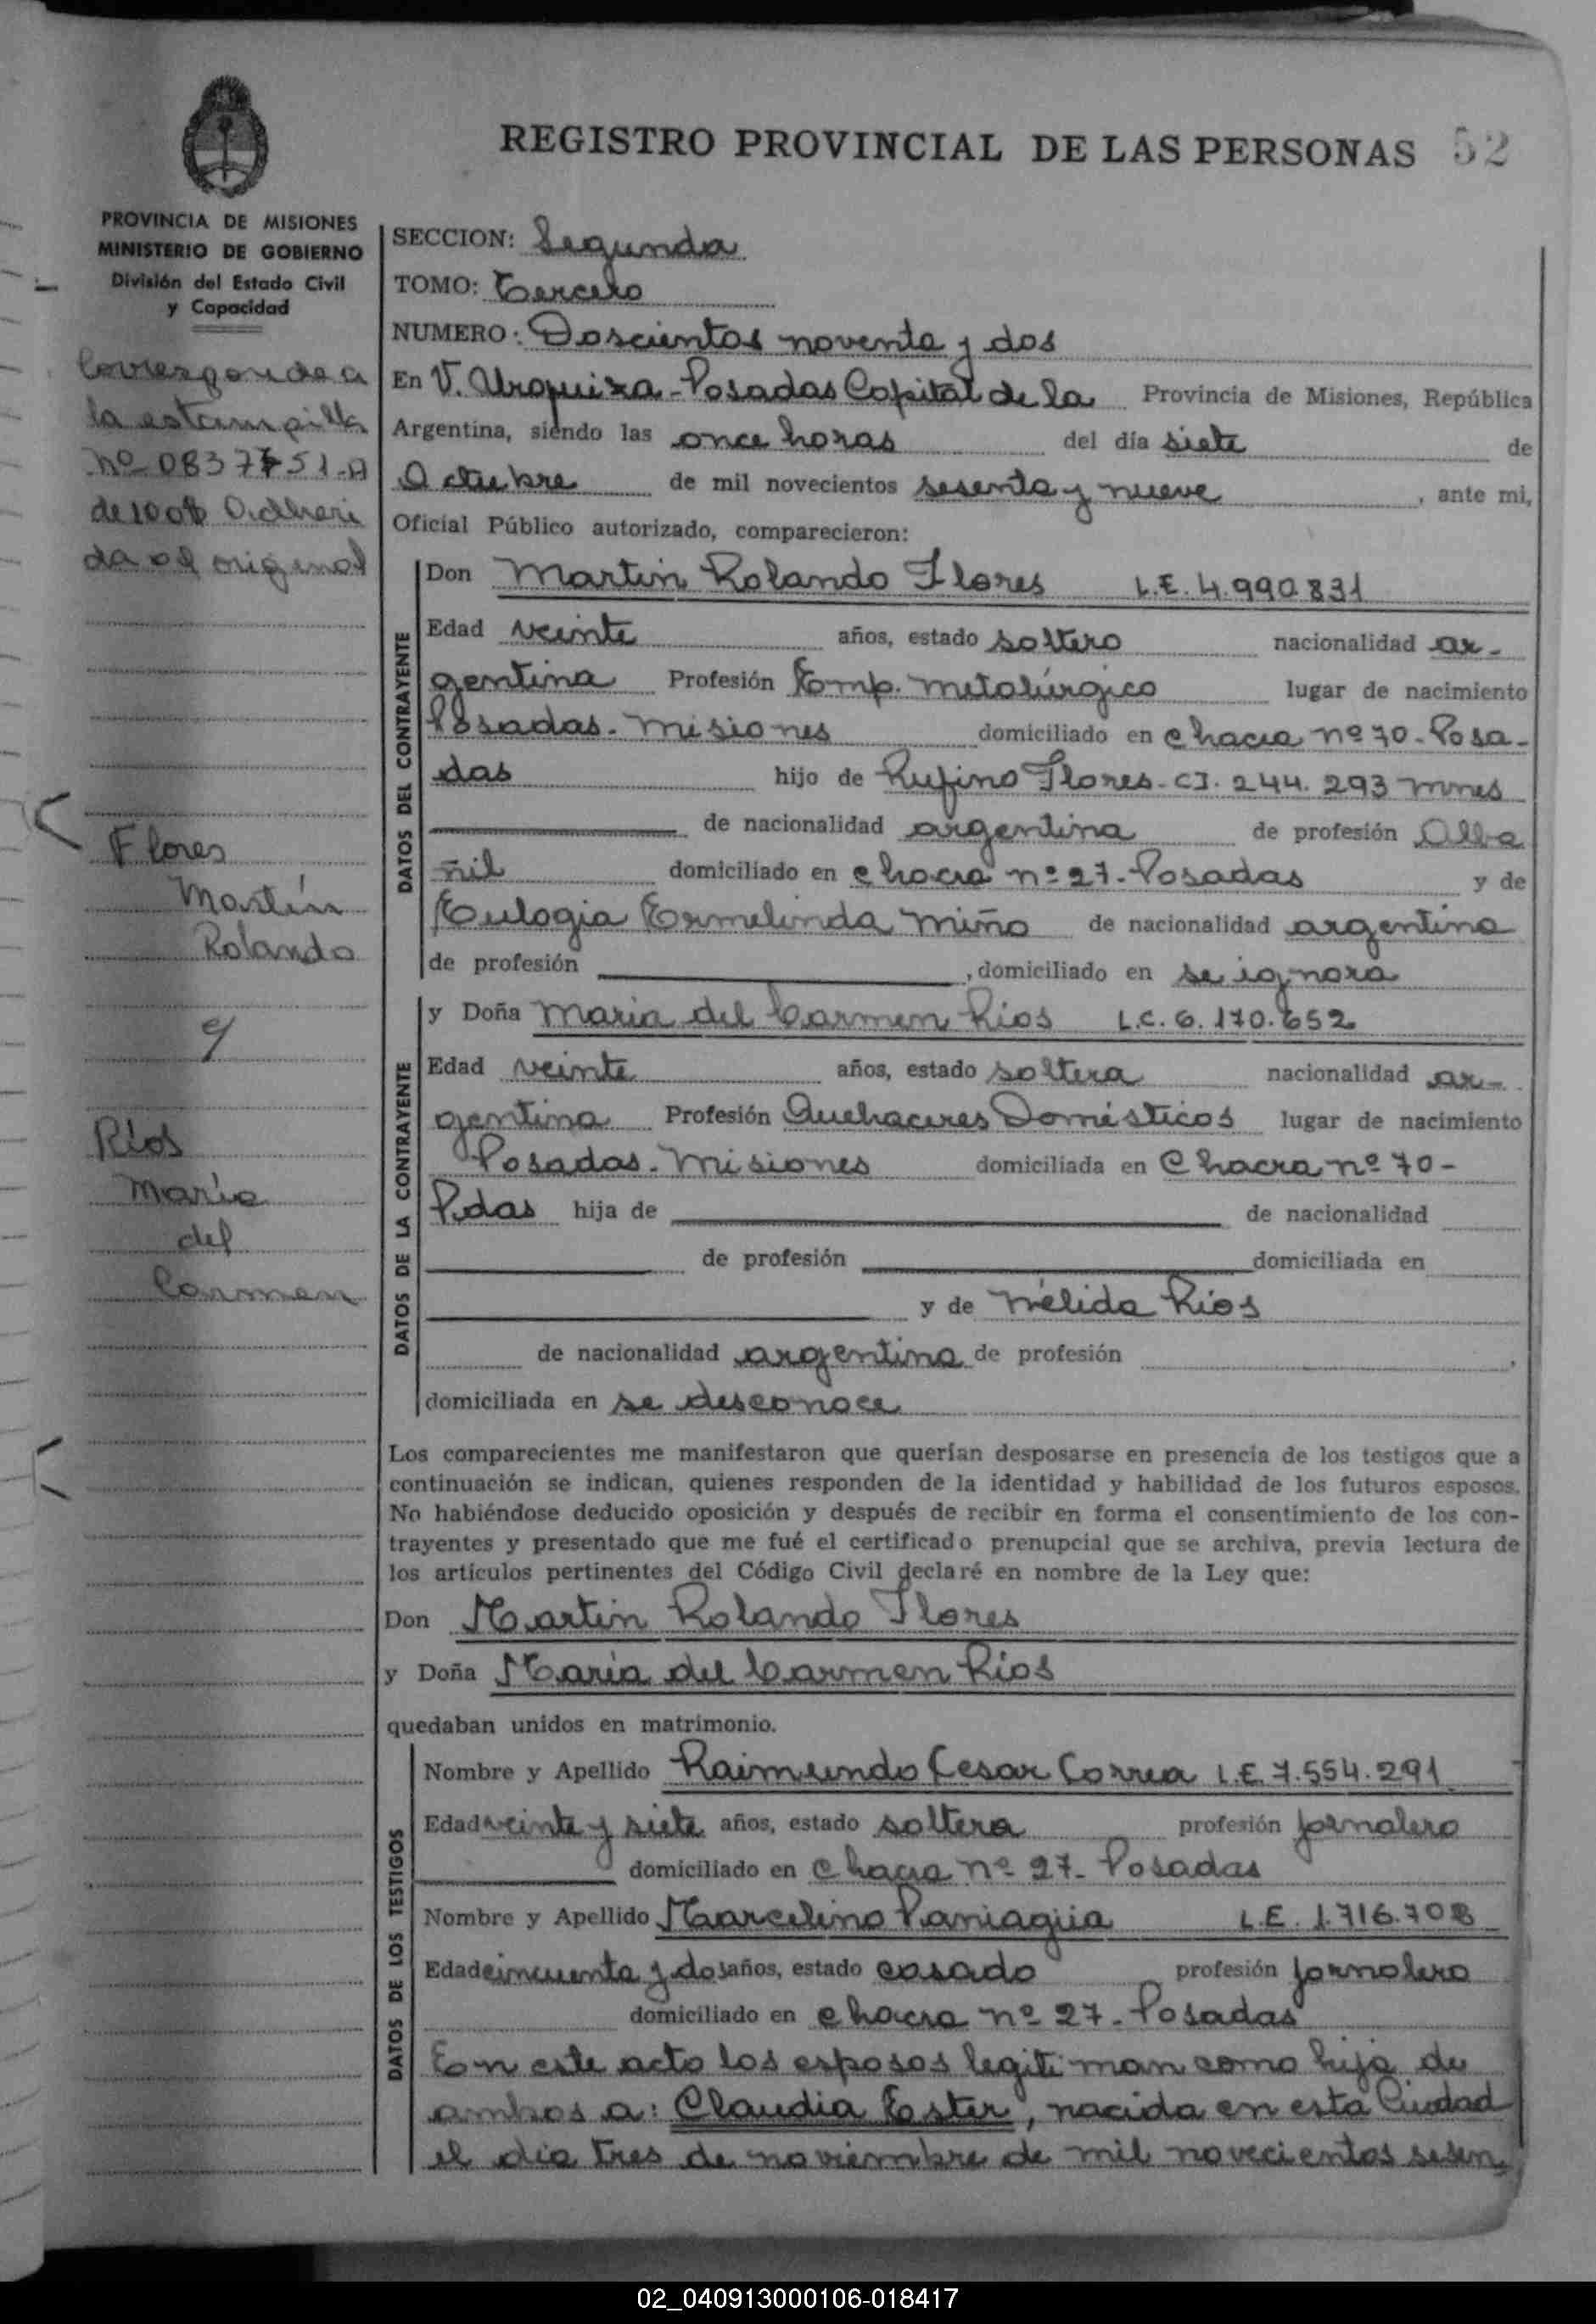 REGISTRO PROVINCIAL DE LAS PERSONAS 52
PROVINCIA DE MISIONES
MINISTERIO DE GOBIERNO
División del Estado Civil
y Capacidad
Corresponde a
la estampilla
nº 0837751-A
de 100$ Adheri
da al original
Flores
Martín
Rolando
y
Ríos
María
del
Carmen
SECCION: Segunda
TOMO: Tercero
NUMERO: Doscientos noventa y dos
En V. Urquiza - Posadas Capital de la Provincia de Misiones, República
Argentina, siendo las once horas del día siete de
Octubre de mil novecientos sesenta y nueve, ante mi,
Oficial Público autorizado, comparecieron:
DATOS DEL CONTRAYENTE
Don Martin Rolando Flores L.E. 4.990.831
Edad veinte años, estado soltero nacionalidad ar-
gentina Profesión Emp. Metalúrgico lugar de nacimiento
Posadas. Misiones domiciliado en Chacra nº 70 - Posa-
das hijo de Rufino Flores - CI. 244.293 Mnes
de nacionalidad argentina de profesión Alba
ñil domiciliado en Chacra nº 27 - Posadas y de
Eulogia Ermelinda Miño de nacionalidad argentina
de profesión , domiciliado en se ignora
DATOS DE LA CONTRAYENTE
y Doña Maria del Carmen Rios L.C. 6.170.652
Edad veinte años, estado soltera nacionalidad ar-
gentina Profesión Quehaceres Domésticos lugar de nacimiento
Posadas - Misiones domiciliada en Chacra nº 70 -
Pdas hija de de nacionalidad
de profesión domiciliada en
y de Nélida Rios
de nacionalidad argentina de profesión ,
domiciliada en se desconoce
Los comparecientes me manifestaron que querían desposarse en presencia de los testigos que a
continuación se indican, quienes responden de la identidad y habilidad de los futuros esposos.
No habiéndose deducido oposición y después de recibir en forma el consentimiento de los con-
trayentes y presentado que me fué el certificado prenupcial que se archiva, previa lectura de
los artículos pertinentes del Código Civil declaré en nombre de la Ley que:
Don Martin Rolando Flores
y Doña María del Carmen Rios
quedaban unidos en matrimonio.
DATOS DE LOS TESTIGOS
Nombre y Apellido Raimundo Cesar Correa L.E. 7.554.291
Edad veinte y siete años, estado soltera profesión jornalero
domiciliado en Chacra nº 27 - Posadas
Nombre y Apellido Marcelino Paniagüa L.E. 1.716.708
Edad cincuenta y dos años, estado casado profesión jornalero
domiciliado en Chacra nº 27 - Posadas
En este acto los esposos legitiman como hija de
ambos a: Claudia Ester, nacida en esta Ciudad
el día tres de noviembre de mil novecientos sesen
02_040913000106-018417